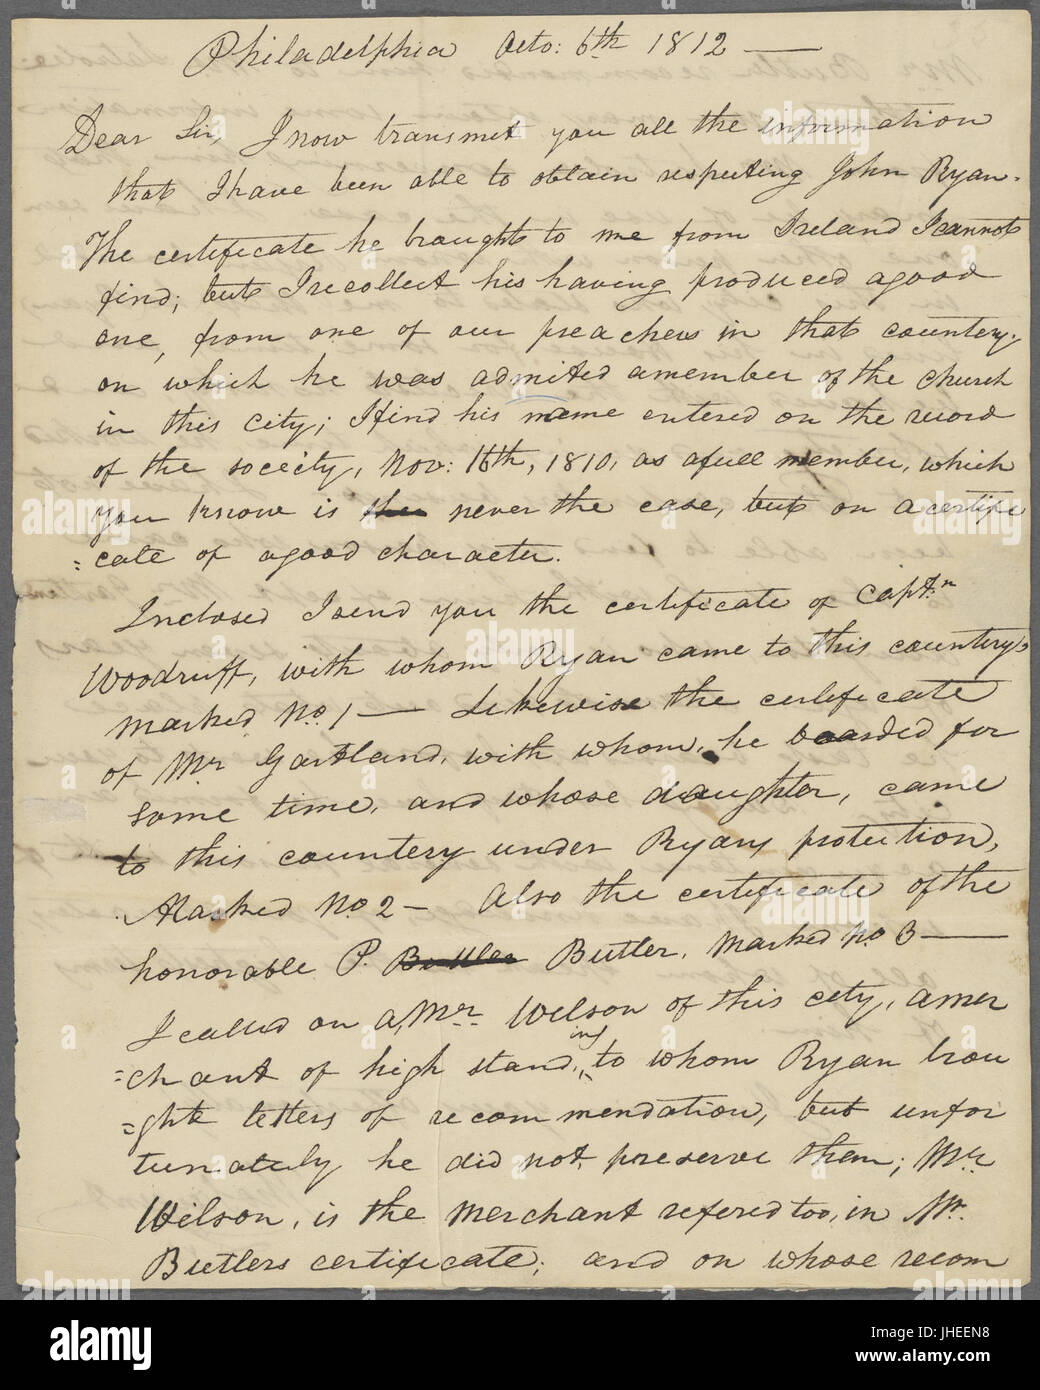 Philadelphia Octo: 6th 1812 —
Dear Sir, I now transmet you all the information
that I have been able to obtain respecting John Ryan.
The certificate he brought to me from Ireland I cannot
find; but I recollect his having produced a good
one, from one of our preachers in that countery.
on which he was admited a member of the church
in this city; I find his name entered on the record
of the soceity, Nov: 16th, 1810, as a full member, which
you know is never the case, but on a certifi
=cate of a good character.
Inclosed I send you the certificate of Capt.n
Woodruff, with whom Ryan came to this country,
marked No. 1 — Likewise the certificate
of Mr Gartland, with whom, he boarded for
some time, and whose daughter, came
to this countery under Ryans protection,
Marked No 2 — Also the certificate of the
honorable P. Butler Butler, Marked No 3 —
I called on a, Mr. Wilson of this city, a mer
=chant of high standing, to whom Ryan brou
=ght letters of recommendation, but unfor
tunately he did not, preserve them; Mr
Wilson, is the Merchant refered too, in Mr.
Butlers certificate; and on whose recom
alamy
a
alamy stock photo
Image ID: JHEEN8
www.alamy.com